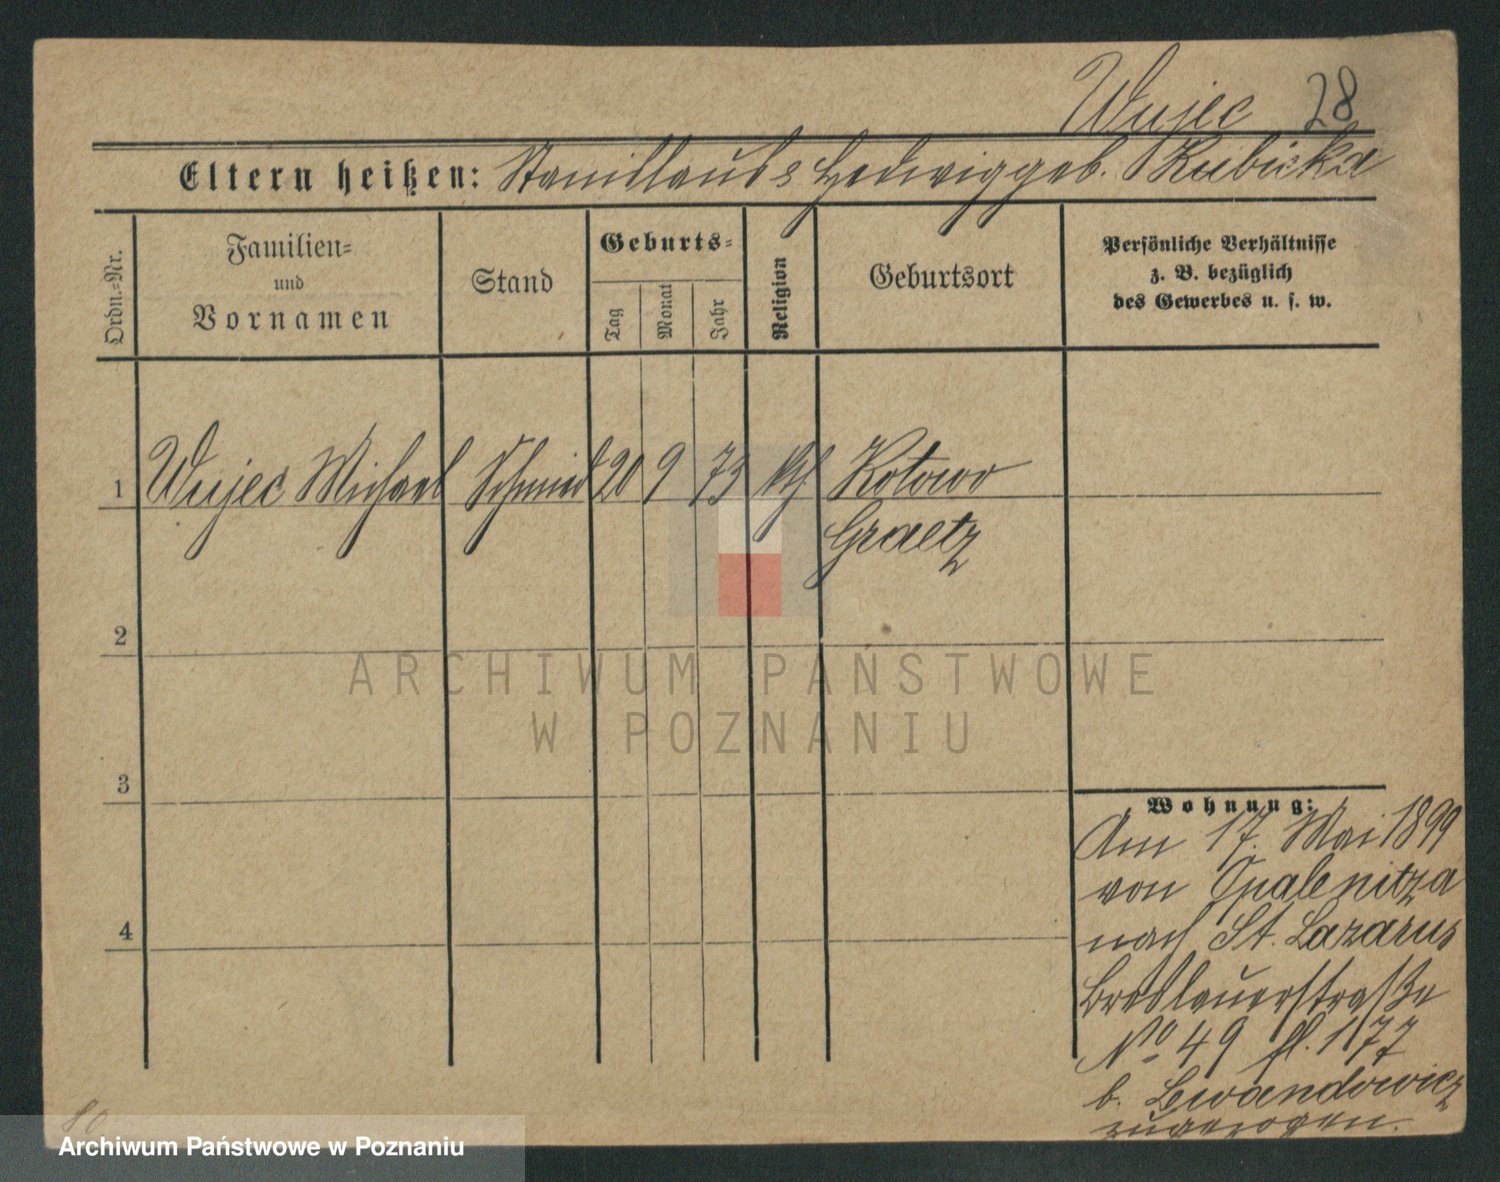 Wujec 28
Eltern heißen: Stanislaus & Hedwig geb. Kubicka
Ordn.=Nr.
Familien=
und
Vornamen
Stand
Geburts=
Tag
Monat
Jahr
Religion
Geburtsort
Persönliche Verhältnisse
z. B. bezüglich
des Gewerbes u. s. w.
1 Wujec Michael Schmied 20 9 73 kth Kotowo
Graetz
2
ARCHIWUM PAŃSTWOWE
W POZNANIU
3
Wohnung:
Am 17. Mai 1899
von Opalenitza
nach St. Lazarus
Breslauerstraße
4
No 49 fl. 177
b. Lewandowicz
zugezogen.
Archiwum Państwowe w Poznaniu